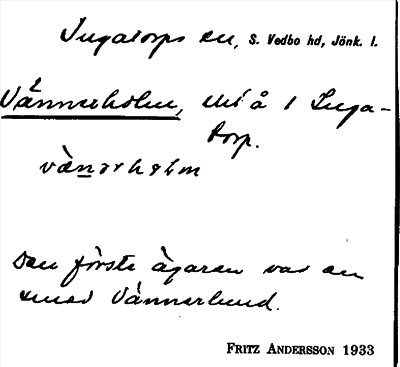 Ingatorps sn, S. Vedbo hd, Jönk. l.
Vännerholm, urså i Inga-
torp.
vä̀nərhəlm
Den förste ägaren var en
smed Vännerlund.
FRITZ ANDERSSON 1933